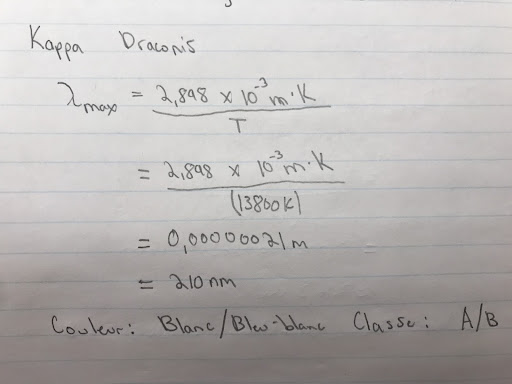 Kappa Draconis
λmax = 2,898 x 10⁻³ m·K
T
= 2,898 x 10⁻³ m·K
(13800K)
= 0,00000021m
= 210nm
Couleur: Blanc/Bleu-blanc Classe: A/B